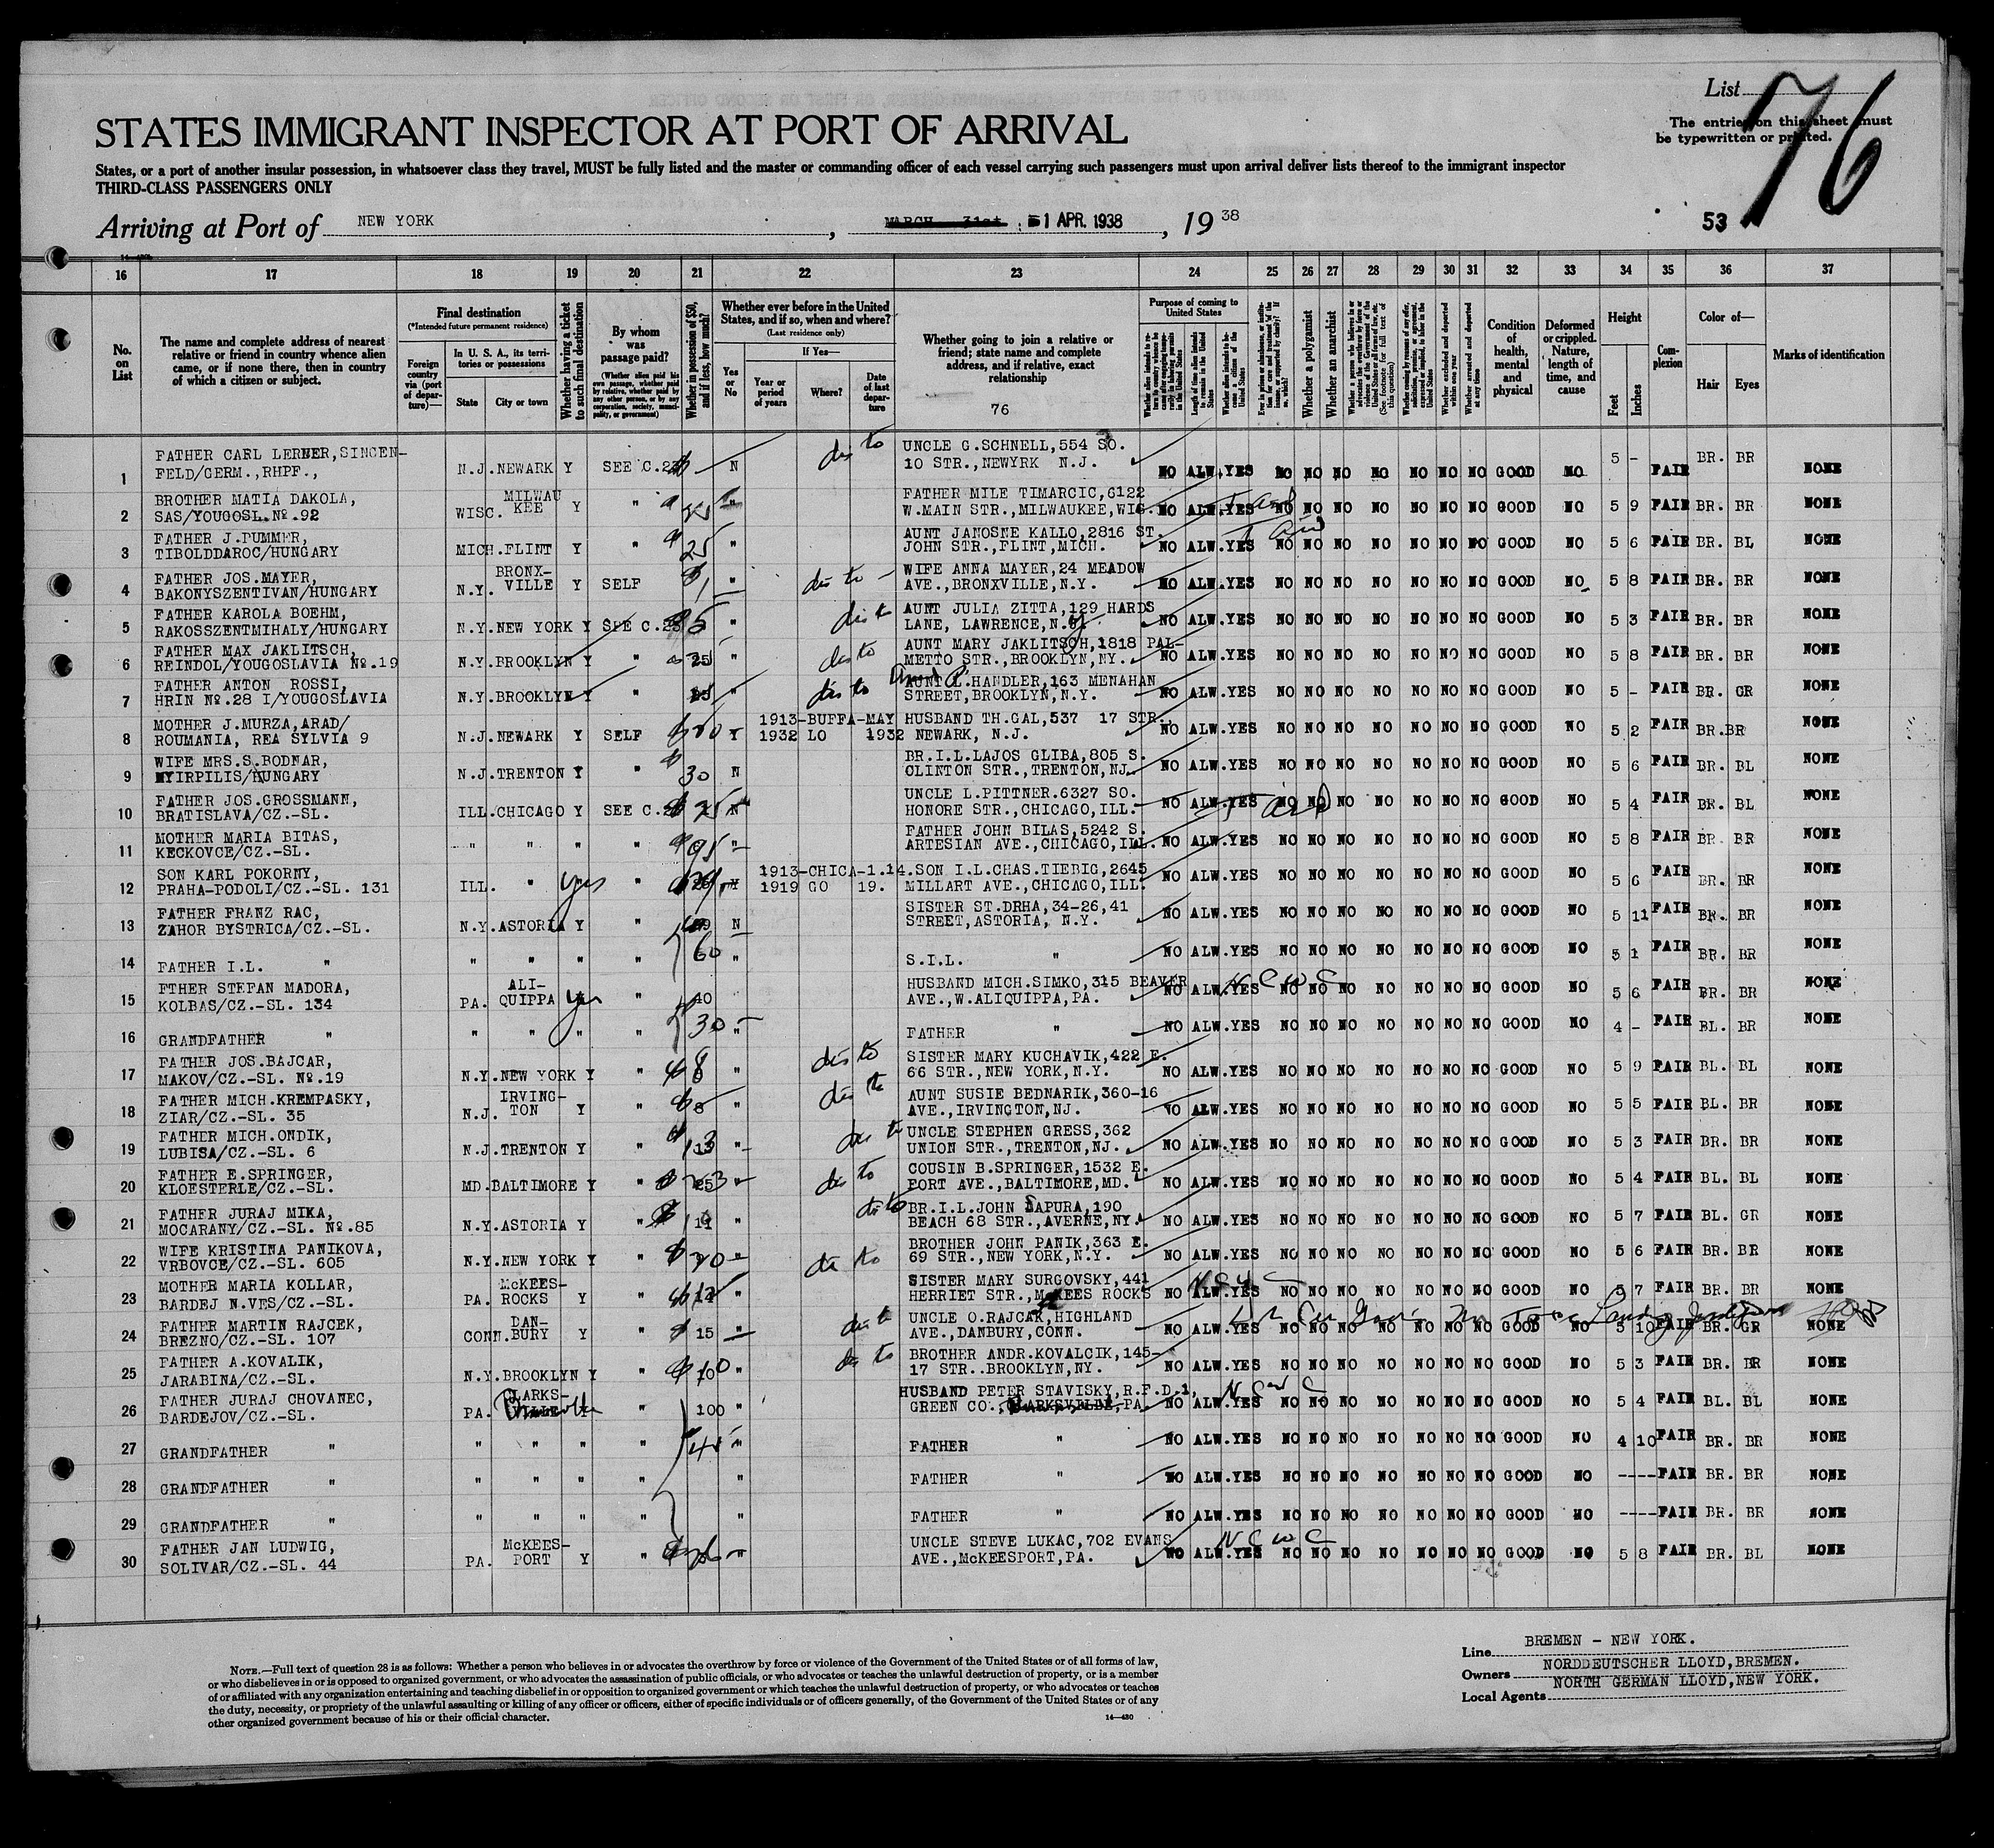 List 76
STATES IMMIGRANT INSPECTOR AT PORT OF ARRIVAL
The entries on this sheet must
be typewritten or printed.
States, or a port of another insular possession, in whatsoever class they travel, MUST be fully listed and the master or commanding officer of each vessel carrying such passengers must upon arrival deliver lists thereof to the immigrant inspector
THIRD-CLASS PASSENGERS ONLY
Arriving at Port of NEW YORK, MARCH 31st 1 APR. 1938, 19 38
53
16 17 18 19 20 21 22 23 24 25 26 27 28 29 30 31 32 33 34 35 36 37
No. on List
The name and complete address of nearest relative or friend in country whence alien came, or if none there, then in country of which a citizen or subject.
Final destination
(*Intended future permanent residence)
Foreign country via (port of departure)—
In U. S. A., its territories or possessions
State
City or town
Whether having a ticket to such final destination
By whom was passage paid?
(Whether alien paid his own passage, whether paid by relative, whether paid by any other person, or by any corporation, society, municipality, or government)
Whether in possession of $50, and if less, how much?
Whether ever before in the United States, and if so, when and where?
(Last residence only)
Yes or No
If Yes—
Year or period of years
Where?
Date of last departure
Whether going to join a relative or friend; state name and complete address, and if relative, exact relationship
76
Purpose of coming to United States
Whether a polygamist
Whether an anarchist
Condition of health, mental and physical
Deformed or crippled. Nature, length of time, and cause
Height
Feet
Inches
Complexion
Color of—
Hair
Eyes
Marks of identification
1 FATHER CARL LERNER, SINGEN- UNCLE G.SCHNELL,554 SO.
FELD/GERM.,RHPF., N.J. NEWARK Y SEE C.23 N 10 STR.,NEWYRK N.J. NO ALW.YES NO NO NO NO NO NO NO GOOD NO 5 - FAIR BR. BR NONE
2 BROTHER MATIA DAKOLA, MILWAU FATHER MILE TIMARCIC,6122
SAS/YOUGOSL.№.92 WISC. KEE Y " " W.MAIN STR.,MILWAUKEE,WIS. NO ALW.YES NO NO NO NO NO NO NO GOOD NO 5 9 FAIR BR. BR NONE
3 FATHER J.PUMMER, AUNT JANOSNE KALLO,2816 ST.
TIBOLDDAROC/HUNGARY MICH.FLINT Y " 25 " JOHN STR.,FLINT,MICH. NO ALW.YES NO NO NO NO NO NO NO GOOD NO 5 6 FAIR BR. BL NONE
4 FATHER JOS.MAYER, BRONX- WIFE ANNA MAYER,24 MEADOW
BAKONYSZENTIVAN/HUNGARY N.Y. VILLE Y SELF " AVE.,BRONXVILLE,N.Y. NO ALW.YES NO NO NO NO NO NO NO GOOD NO 5 8 FAIR BR. BR NONE
5 FATHER KAROLA BOEHM, AUNT JULIA ZITTA,129 HARDS
RAKOSSZENTMIHALY/HUNGARY N.Y.NEW YORK Y SEE C.23 5 " LANE, LAWRENCE,N.Y. NO ALW.YES NO NO NO NO NO NO NO GOOD NO 5 3 FAIR BR. BR NONE
6 FATHER MAX JAKLITSCH, AUNT MARY JAKLITSCH,1818 PAL-
REINDOL/YOUGOSLAVIA №.19 N.Y.BROOKLYN Y " 25 " METTO STR.,BROOKLYN,NY. NO ALW.YES NO NO NO NO NO NO NO GOOD NO 5 8 FAIR BR. BR NONE
7 FATHER ANTON ROSSI, AUNT L.HANDLER,163 MENAHAN
HRIN №.28 I/YOUGOSLAVIA N.Y.BROOKLYN Y " " STREET,BROOKLYN,N.Y. NO ALW.YES NO NO NO NO NO NO NO GOOD NO 5 - FAIR BR. GR NONE
8 MOTHER J.MURZA,ARAD/ 1913-BUFFA-MAY HUSBAND TH.GAL,537 17 STR.,
ROUMANIA, REA SYLVIA 9 N.J.NEWARK Y SELF Y 1932 LO 1932 NEWARK, N.J. NO ALW.YES NO NO NO NO NO NO NO GOOD NO 5 2 FAIR BR.BR NONE
9 WIFE MRS.S.BODNAR, BR.I.L.LAJOS GLIBA,805 S.
NYIRPILIS/HUNGARY N.J.TRENTON Y " 30 N CLINTON STR.,TRENTON,NJ. NO ALW.YES NO NO NO NO NO NO NO GOOD NO 5 6 FAIR BR. BL NONE
10 FATHER JOS.GROSSMANN, UNCLE L.PITTNER.6327 SO.
BRATISLAVA/CZ.-SL. ILL.CHICAGO Y SEE C. N HONORE STR.,CHICAGO,ILL. NO ALW.YES NO NO NO NO NO NO NO GOOD NO 5 4 FAIR BR. BL NONE
11 MOTHER MARIA BITAS, FATHER JOHN BILAS,5242 S.
KECKOVCE/CZ.-SL. " " " " " ARTESIAN AVE.,CHICAGO,ILL. NO ALW.YES NO NO NO NO NO NO NO GOOD NO 5 8 FAIR BR. BR NONE
12 SON KARL POKORNY, 1913-CHICA-1.14. SON I.L.CHAS.TIEBIG,2645
PRAHA-PODOLI/CZ.-SL. 131 ILL. " yes " Y 1919 GO 19. MILLART AVE.,CHICAGO,ILL. NO ALW.YES NO NO NO NO NO NO NO GOOD NO 5 6 FAIR BR. BR NONE
13 FATHER FRANZ RAC, SISTER ST.DRHA,34-26,41
ZAHOR BYSTRICA/CZ.-SL. N.Y.ASTORIA Y " N STREET,ASTORIA, N.Y. NO ALW.YES NO NO NO NO NO NO NO GOOD NO 5 11 FAIR BR. BR NONE
14 FATHER I.L. " " " " " 60 " S.I.L. " NO ALW.YES NO NO NO NO NO NO NO GOOD NO 5 1 FAIR BR. BR NONE
15 FTHER STEFAN MADORA, ALI- HUSBAND MICH.SIMKO,315 BEAVER
KOLBAS/CZ.-SL. 134 PA. QUIPPA yes " 40 AVE.,W.ALIQUIPPA,PA. NO ALW.YES NO NO NO NO NO NO NO GOOD NO 5 6 FAIR BR. BR NONE
16 GRANDFATHER " " " " " 30 " FATHER " NO ALW.YES NO NO NO NO NO NO NO GOOD NO 4 - FAIR BL. BR NONE
17 FATHER JOS.BAJCAR, SISTER MARY KUCHAVIK,422 E.
MAKOV/CZ.-SL. №.19 N.Y.NEW YORK Y " 8 " 66 STR.,NEW YORK,N.Y. NO ALW.YES NO NO NO NO NO NO NO GOOD NO 5 9 FAIR BL. BL NONE
18 FATHER MICH.KREMPASKY, IRVING- AUNT SUSIE BEDNARIK,360-16
ZIAR/CZ.-SL. 35 N.J. TON Y " " AVE.,IRVINGTON,NJ. NO ALW.YES NO NO NO NO NO NO NO GOOD NO 5 5 FAIR BL. BR NONE
19 FATHER MICH.ONDIK, UNCLE STEPHEN GRESS,362
LUBISA/CZ.-SL. 6 N.J.TRENTON Y " 13 " UNION STR.,TRENTON,NJ. NO ALW.YES NO NO NO NO NO NO NO GOOD NO 5 3 FAIR BR. BR NONE
20 FATHER E.SPRINGER, COUSIN B.SPRINGER,1532 E.
KLOESTERLE/CZ.-SL. MD.BALTIMORE Y " " FORT AVE.,BALTIMORE,MD. NO ALW.YES NO NO NO NO NO NO NO GOOD NO 5 4 FAIR BL. BL NONE
21 FATHER JURAJ MIKA, BR.I.L.JOHN SAPURA,190
MOCARANY/CZ.-SL. №.85 N.Y.ASTORIA Y " " BEACH 68 STR.,AVERNE,NY. NO ALW.YES NO NO NO NO NO NO NO GOOD NO 5 7 FAIR BL. GR NONE
22 WIFE KRISTINA PANIKOVA, BROTHER JOHN PANIK,363 E.
VRBOVCE/CZ.-SL. 605 N.Y.NEW YORK Y " " 69 STR.,NEW YORK,N.Y. NO ALW.YES NO NO NO NO NO NO NO GOOD NO 5 6 FAIR BR. BR NONE
23 MOTHER MARIA KOLLAR, McKEES- SISTER MARY SURGOVSKY,441
BARDEJ N.VES/CZ.-SL. PA. ROCKS Y " " HERRIET STR.,McKEES ROCKS NO ALW.YES NO NO NO NO NO NO NO GOOD NO 5 7 FAIR BR. BR NONE
24 FATHER MARTIN RAJCEK, DAN- UNCLE O.RAJCAK,HIGHLAND
BREZNO/CZ.-SL. 107 CONN.BURY Y " 15 " AVE.,DANBURY,CONN. NO ALW.YES NO NO NO NO NO NO NO GOOD NO 5 10 FAIR BR. GR NONE
25 FATHER A.KOVALIK, BROTHER ANDR.KOVALCIK,145-
JARABINA/CZ.-SL. N.Y.BROOKLYN Y " 10 " 17 STR..BROOKLYN,NY. NO ALW.YES NO NO NO NO NO NO NO GOOD NO 5 3 FAIR BR. BR NONE
26 FATHER JURAJ CHOVANEC, CLARKS- HUSBAND PETER STAVISKY,R.F.D.1,
BARDEJOV/CZ.-SL. PA. VILLE Y " 100 " GREEN CO.,CLARKSVILLE,PA. NO ALW.YES NO NO NO NO NO NO NO GOOD NO 5 4 FAIR BL. BL NONE
27 GRANDFATHER " " " " " " FATHER " NO ALW.YES NO NO NO NO NO NO NO GOOD NO 4 10 FAIR BR. BR NONE
28 GRANDFATHER " " " " " " FATHER " NO ALW.YES NO NO NO NO NO NO NO GOOD NO ---- FAIR BR. BR NONE
29 GRANDFATHER " " " " " " FATHER " NO ALW.YES NO NO NO NO NO NO NO GOOD NO ---- FAIR BR. BR NONE
30 FATHER JAN LUDWIG, McKEES- UNCLE STEVE LUKAC,702 EVANS
SOLIVAR/CZ.-SL. 44 PA. PORT Y " " AVE.,McKEESPORT,PA. NO ALW.YES NO NO NO NO NO NO NO GOOD NO 5 8 FAIR BR. BL NONE
NOTE.—Full text of question 28 is as follows: Whether a person who believes in or advocates the overthrow by force or violence of the Government of the United States or of all forms of law,
or who disbelieves in or is opposed to organized government, or who advocates the assassination of public officials, or who advocates or teaches the unlawful destruction of property, or is a member
of or affiliated with any organization entertaining and teaching disbelief in or opposition to organized government or which teaches the unlawful destruction of property, or who advocates or teaches
the duty, necessity, or propriety of the unlawful assaulting or killing of any officer or officers, either of specific individuals or of officers generally, of the Government of the United States or of any
other organized government because of his or their official character.
14—430
Line BREMEN - NEW YORK.
Owners NORDDEUTSCHER LLOYD,BREMEN.
Local Agents NORTH GERMAN LLOYD,NEW YORK.